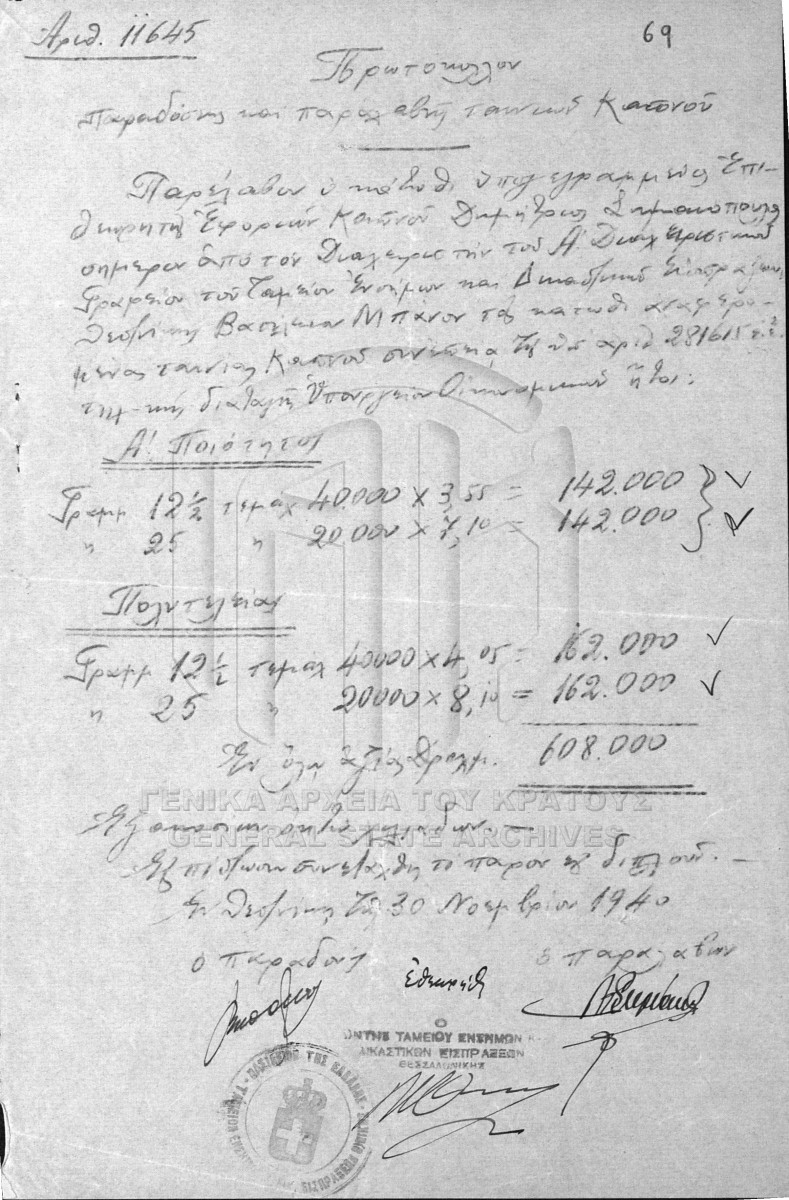 Αριθ. 11645
69
Πρωτοκολλον
Παραδόσεως και παραλαβής ταινιών Καπνού
Παρέλαβον ο κάτωθι υπογεγραμμένος Επι-
θεωρητής Εφοριών Καπνού Δημήτριος
σήμερον από τον Διαχειριστήν του Α' Διαχειριστικού
Γραφείου του Ταμείου Ενσήμων και Δικαστικών Εισπράξεων
Θεσ/νίκης Βασίλειον Μπάνον τας κάτωθι αναφερο-
μένας ταινίας Καπνού συνεπεία της υπ' αριθ 281615 ε.ε.
τηλ-κής διαταγής Υπουργείου Οικονομικών ήτοι:
Α'. Ποιότητος
Γραμμ 12 1/2 τεμάχ 40.000 x 3,55 = 142.000
" 25 " 20.000 x 7,10 = 142.000
Πολυτελείας
Γραμμ 12 1/2 τεμάχ 40000 x 4,05 = 162.000
" 25 " 20000 x 8,10 = 162.000
Εν όλω αξίας Δραχμ. 608.000
ΓΕΝΙΚΑ ΑΡΧΕΙΑ ΤΟΥ ΚΡΑΤΟΥΣ
Εξακοσίων οκτώ χιλιάδων.—
GENERAL STATE ARCHIVES
Εις πίστωσιν συνετάχθη το παρόν εις διπλούν.—
Εν Θεσ/νίκη τη 30 Νοεμβρίου 1940
ο παραδούς ο παραλαβών
Εθεωρήθη
Ο
ΝΤΗΣ ΤΑΜΕΙΟΥ ΕΝΣΗΜΩΝ Κ
ΔΙΚΑΣΤΙΚΩΝ ΕΙΣΠΡΑΞΕΩΝ
ΘΕΣΣΑΛΟΝΙΚΗΣ
ΒΑΣΙΛΕΙΟΝ ΤΗΣ ΕΛΛΑΔΟΣ
ΕΙΣΠΡΑΞΕΩΝ